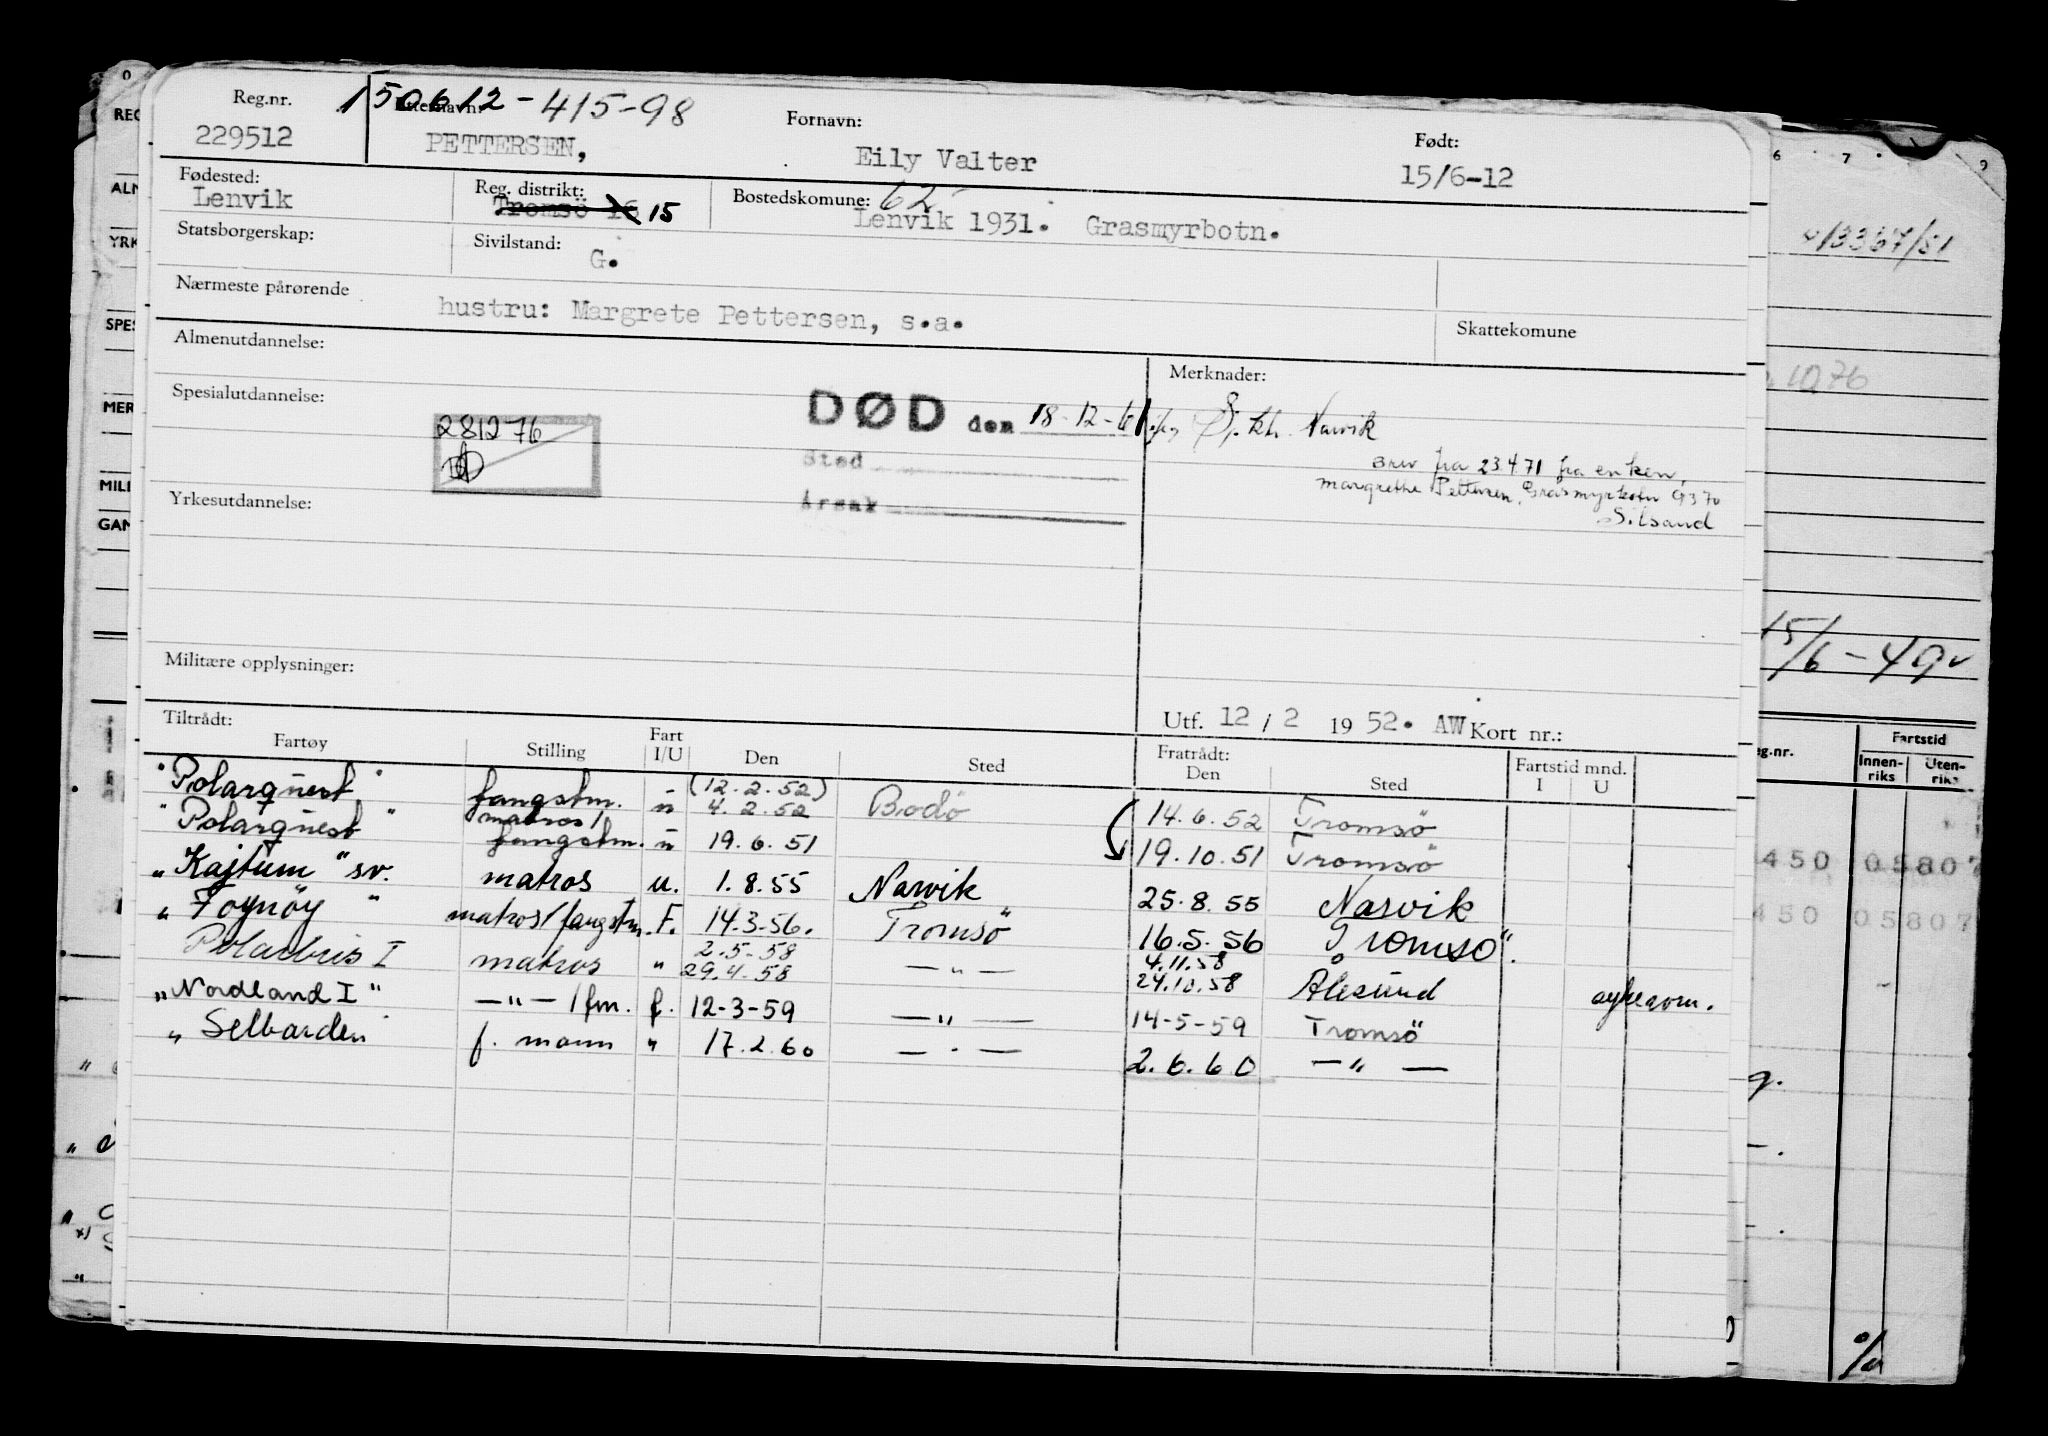 Reg.nr. 150612-415-98
229512 Etternavn: PETTERSEN, Fornavn: Eily Valter Født: 15/6-12
Fødested: Lenvik Reg. distrikt: Tromsö 16 15 Bostedskomune: 62 Lenvik 1931. Grasmyrbotn.
Statsborgerskap: Sivilstand: G.
Nærmeste pårørende hustru: Margrete Pettersen, s.a. Skattekomune
Almenutdannelse: Merknader:
Spesialutdannelse: DØD den 18-12-61 Sj.kh. Narvik
281276
Sted
Årsak
Brev fra 23.4.71 fra enken,
Margrethe Pettersen, Grasmyrbotn 9370
Silsand
Yrkesutdannelse:
Militære opplysninger:
Utf. 12/2 1952. AW Kort nr.:
Tiltrådt: Fratrådt: Fartstid mnd.
Fartøy Stilling Fart I/U Den Sted Den Sted I U
"Polarquest" fangstm. u (12.2.52) 4.2.52 Bodö 14.6.52 Tromsö
"Polarquest" matros/fangstm. u 19.6.51 19.10.51 Tromsö
"Kajtum" sv. matros u. 1.8.55 Narvik 25.8.55 Narvik
"Föynöy" matros/fangstm. F. 14.3.56. Tromsö 16.5.56 Tromsö.
Polarbris I matros " 2.5.58 29.4.58 —"— 4.11.58 24.10.58 Ålesund
"Nordland I" —"—/fm. f. 12-3-59 —"— 14-5-59 Tromsö
"Selbarden f. mann " 17.2.60 —"— 2.6.60 —"—
6 7 9
13367/51
1076
15/6-49
g.nr. Fartstid
Innen-riks Uten-riks
450 05807
450 05807
0
REG
ALM
YRK
SPES
MER
MILI
GAM